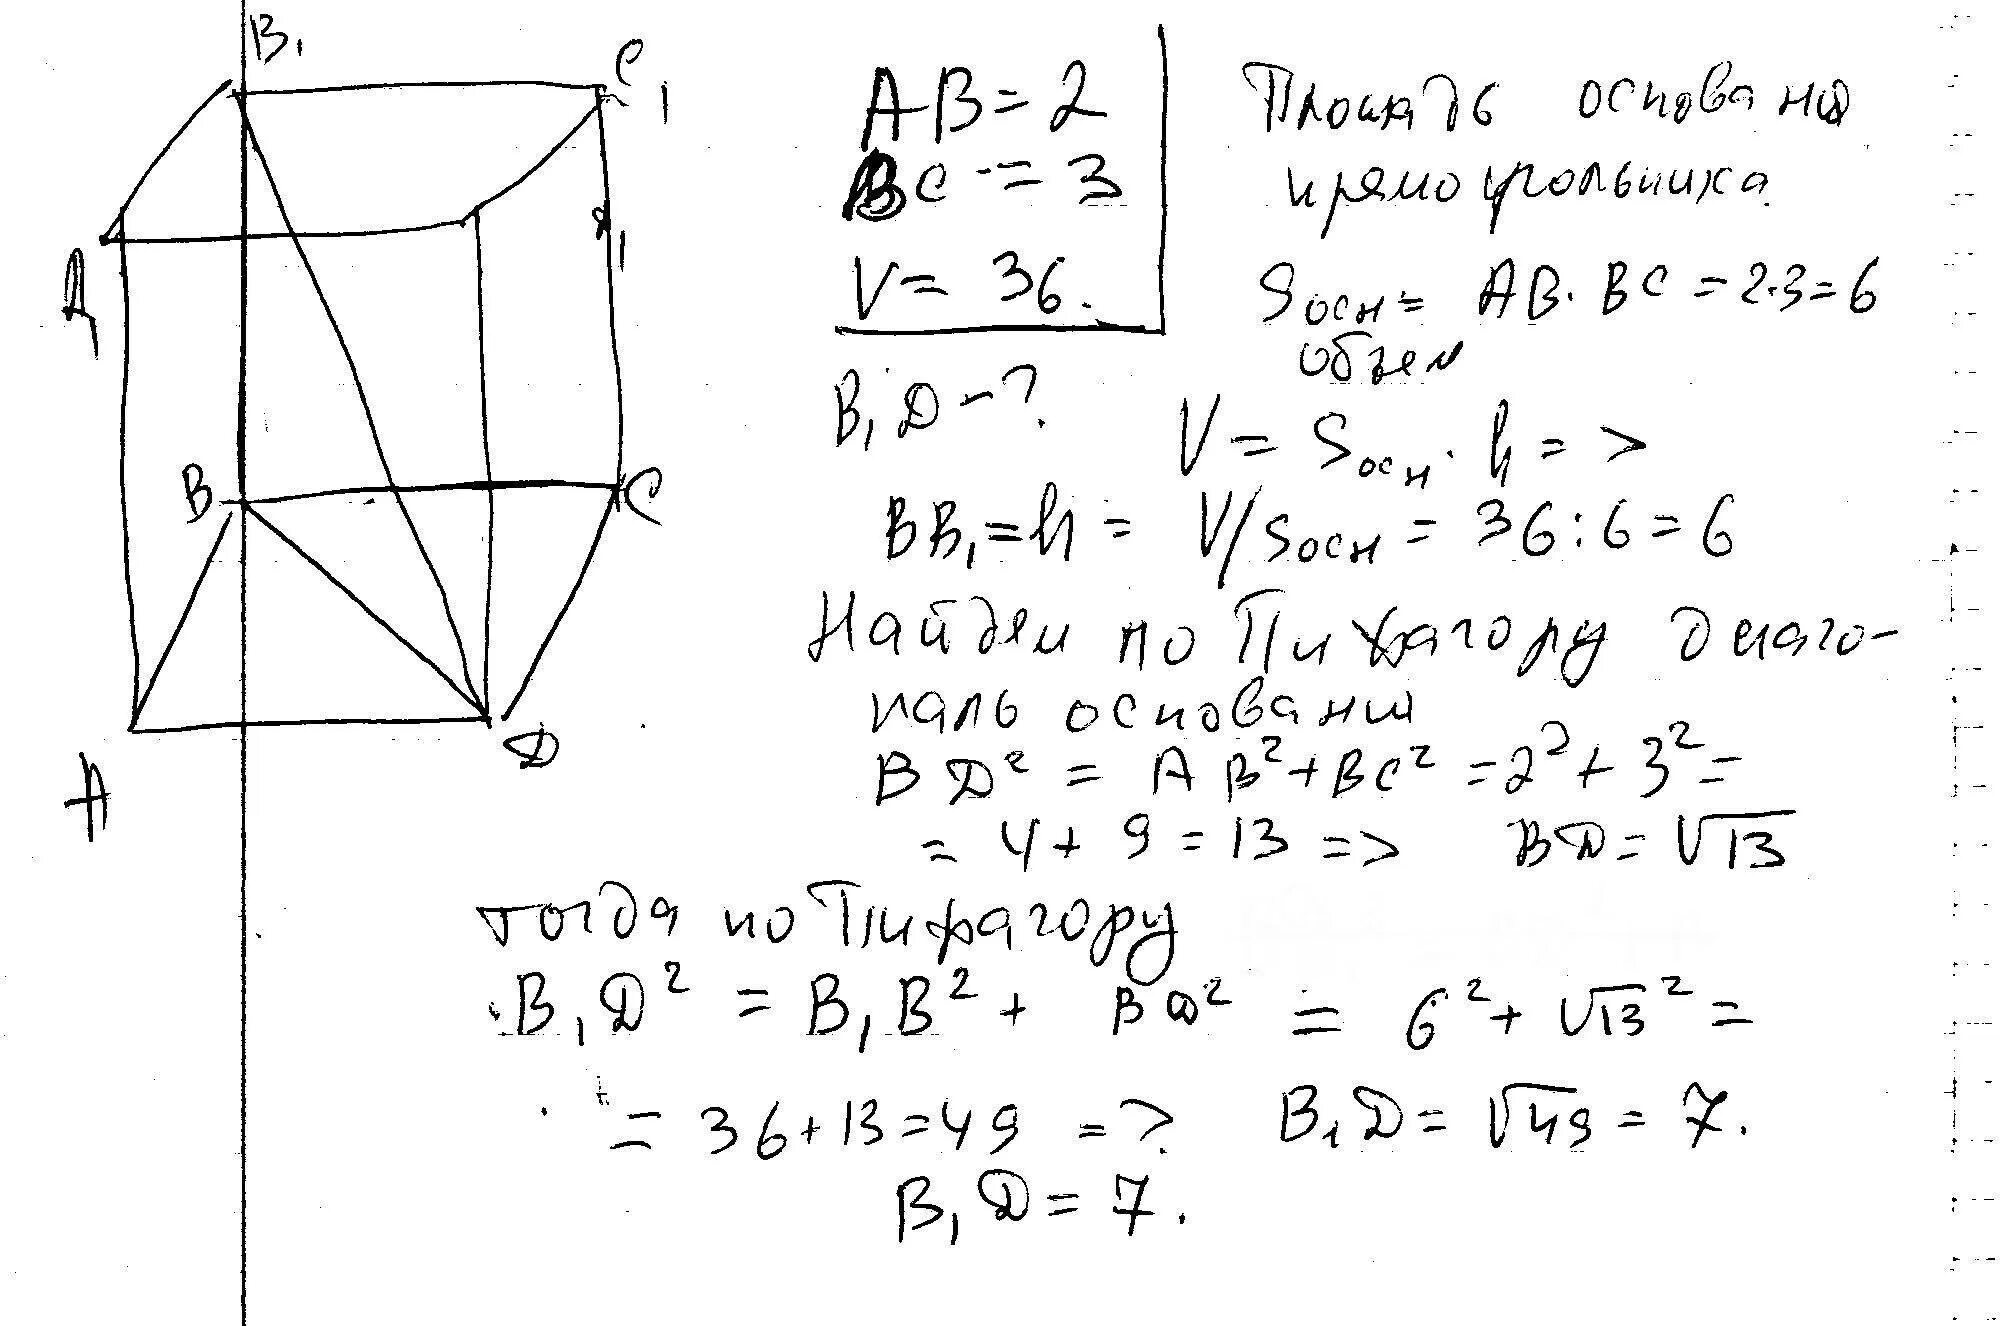 B₁
C₁
A₁
D₁
B
C
A
D
AB = 2
BC = 3
V = 36.
B₁D - ?
Площадь основания
прямоугольника
Sосн = AB · BC = 2·3 = 6
объем
V = Sосн · h =>
BB₁ = h = V/Sосн = 36 : 6 = 6
Найдем по Пифагору диаго-
наль основания
BD² = AB² + BC² = 2² + 3² =
= 4 + 9 = 13 => BD = √13
тогда по Пифагору
B₁D² = B₁B² + BD² = 6² + √13² =
= 36 + 13 = 49 = ? B₁D = √49 = 7.
B₁D = 7.